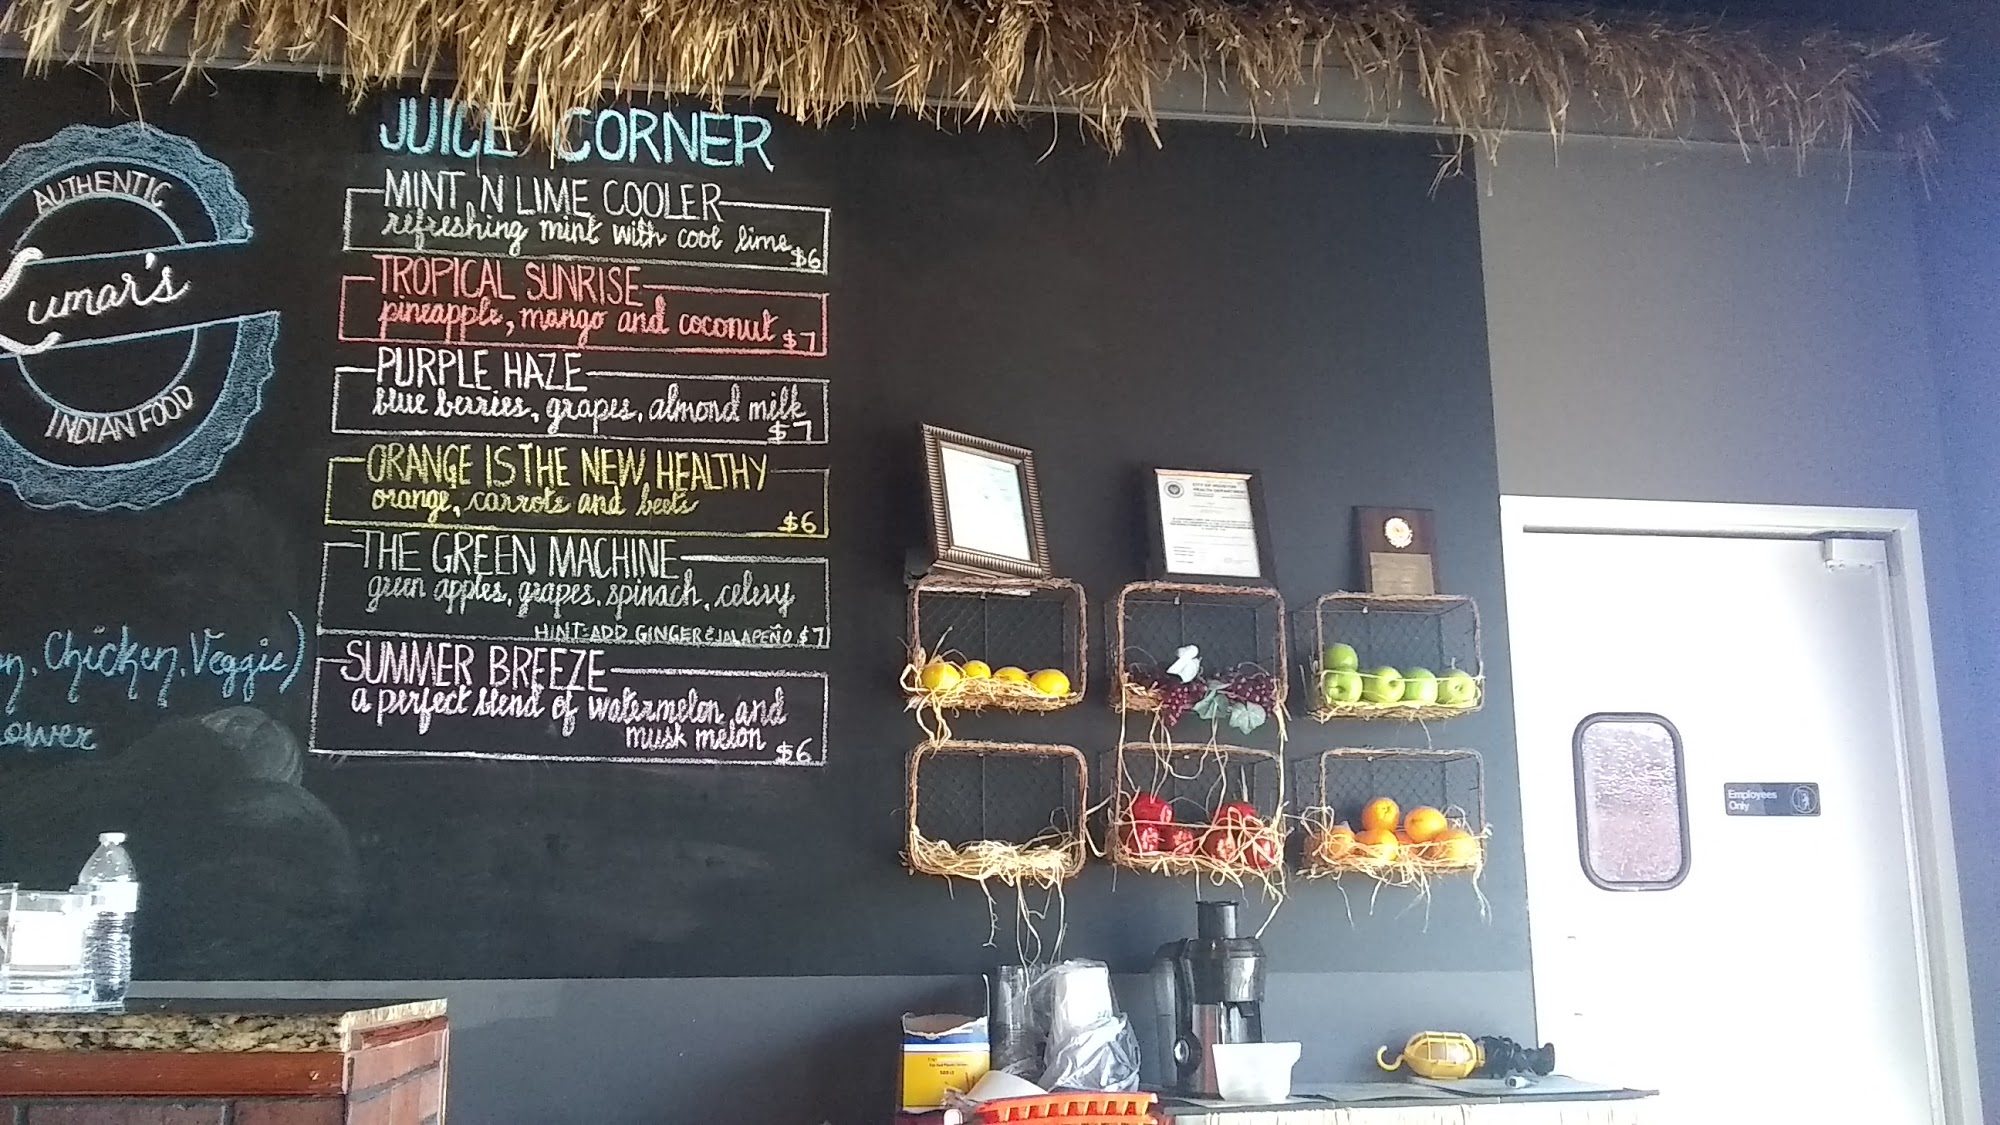 AUTHENTIC
umar's
INDIAN FOOD
Chicken, Veggie)
JUICE CORNER
MINT 'N LIME COOLER
refreshing mint with cool lime
$6
TROPICAL SUNRISE
pineapple, mango and coconut $7
PURPLE HAZE
blue berries, grapes, almond milk
$7
ORANGE IS THE NEW HEALTHY
orange, carrots and beets
$6
THE GREEN MACHINE
green apples, grapes, spinach, celery
HINT: ADD GINGER & JALAPEÑO $7
SUMMER BREEZE
a perfect blend of watermelon and
musk melon
$6
CITY OF HOUSTON
HEALTH DEPARTMENT
Employees
Only